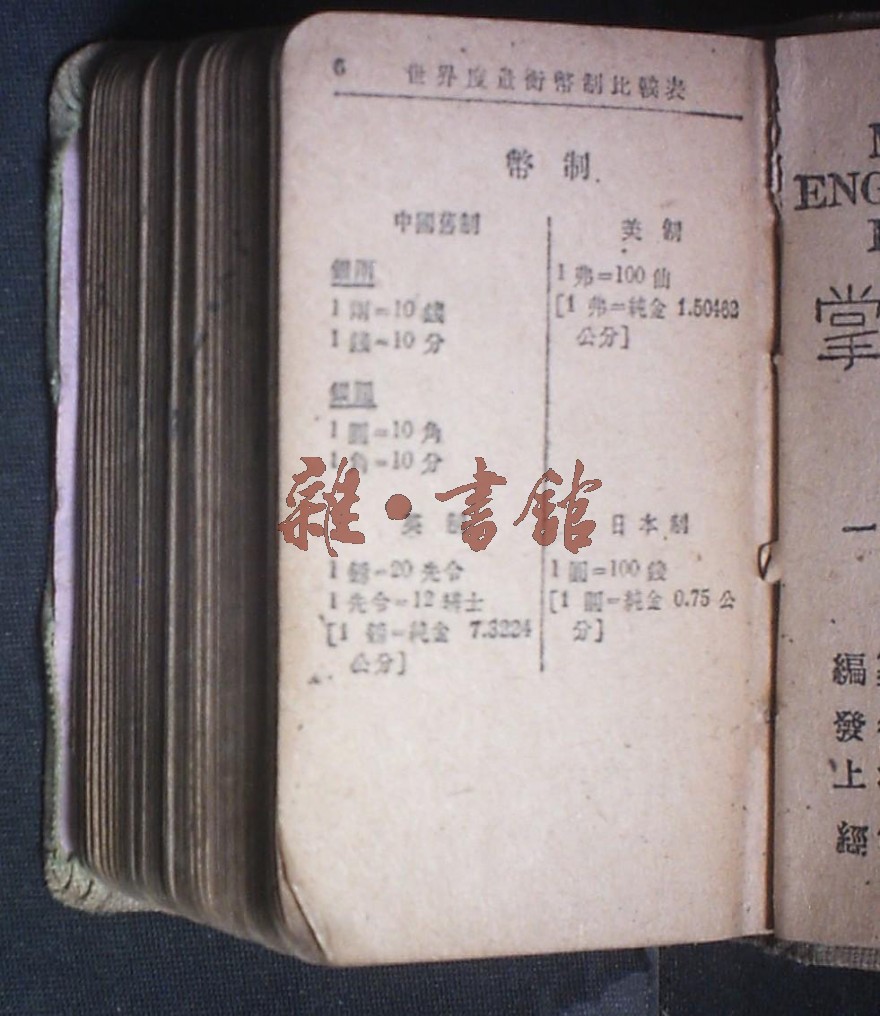 6 世界度量衡幣制比較表
幣制
中國舊制
銀兩
1 兩=10 錢
1 錢=10 分
銀圓
1 圓=10 角
1 角=10 分
美制
1 弗=100 仙
[1 弗=純金 1.50462
公分]
英制
1 鎊=20 先令
1 先令=12 辨士
[1 鎊=純金 7.3224
公分]
日本制
1 圓=100 錢
[1 圓=純金 0.75 公
分]
雜·書館
ENG
掌
一
編
發
上
經